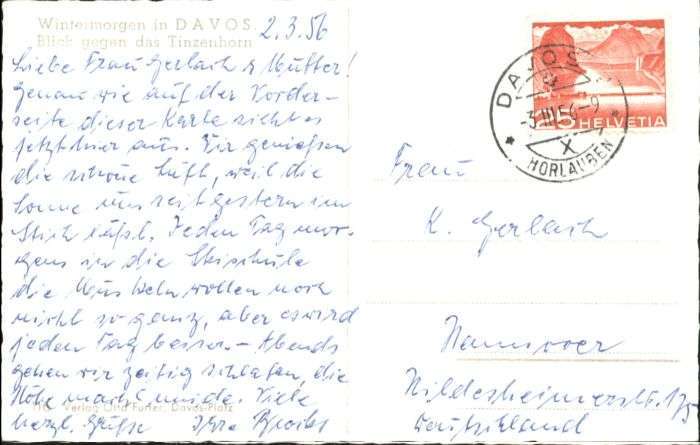 Wintermorgen in DAVOS
Blick gegen das Tinzenhorn
2.3.56
Liebe Frau Gerlach & Mutter!
Genau wie auf der Vorder-
seite dieser Karte sieht es
jetzt hier aus. Wir genießen
die schöne Luft, weil die
Sonne uns seit gestern im
Stich läßt. Jeden Tag mor-
gens in die Skischule
die Muskeln wollen noch
nicht so ganz, aber es wird
jeden Tag besser. – Abends
gehen wir zeitig schlafen, die
Höhe macht müde. Viele
herzl. Grüße Ihre
Verlag Otto Furter, Davos-Platz
DAVOS
-3.III.56-9
X
HORLAUBEN
15 HELVETIA
Frau
K. Gerlach
Hannover
Hildesheimerstr. 175
Deutschland